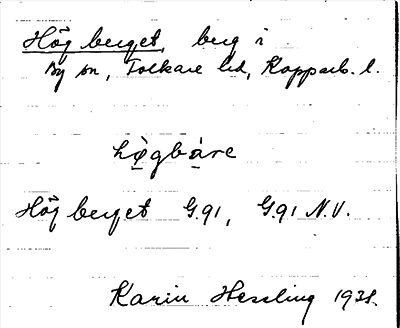 Högberget, berg i
By sn, Folkare hd, Kopparb. l.
hògbàre
Högberget G.91, G.91 N.V.
Karin Hessling 1938.